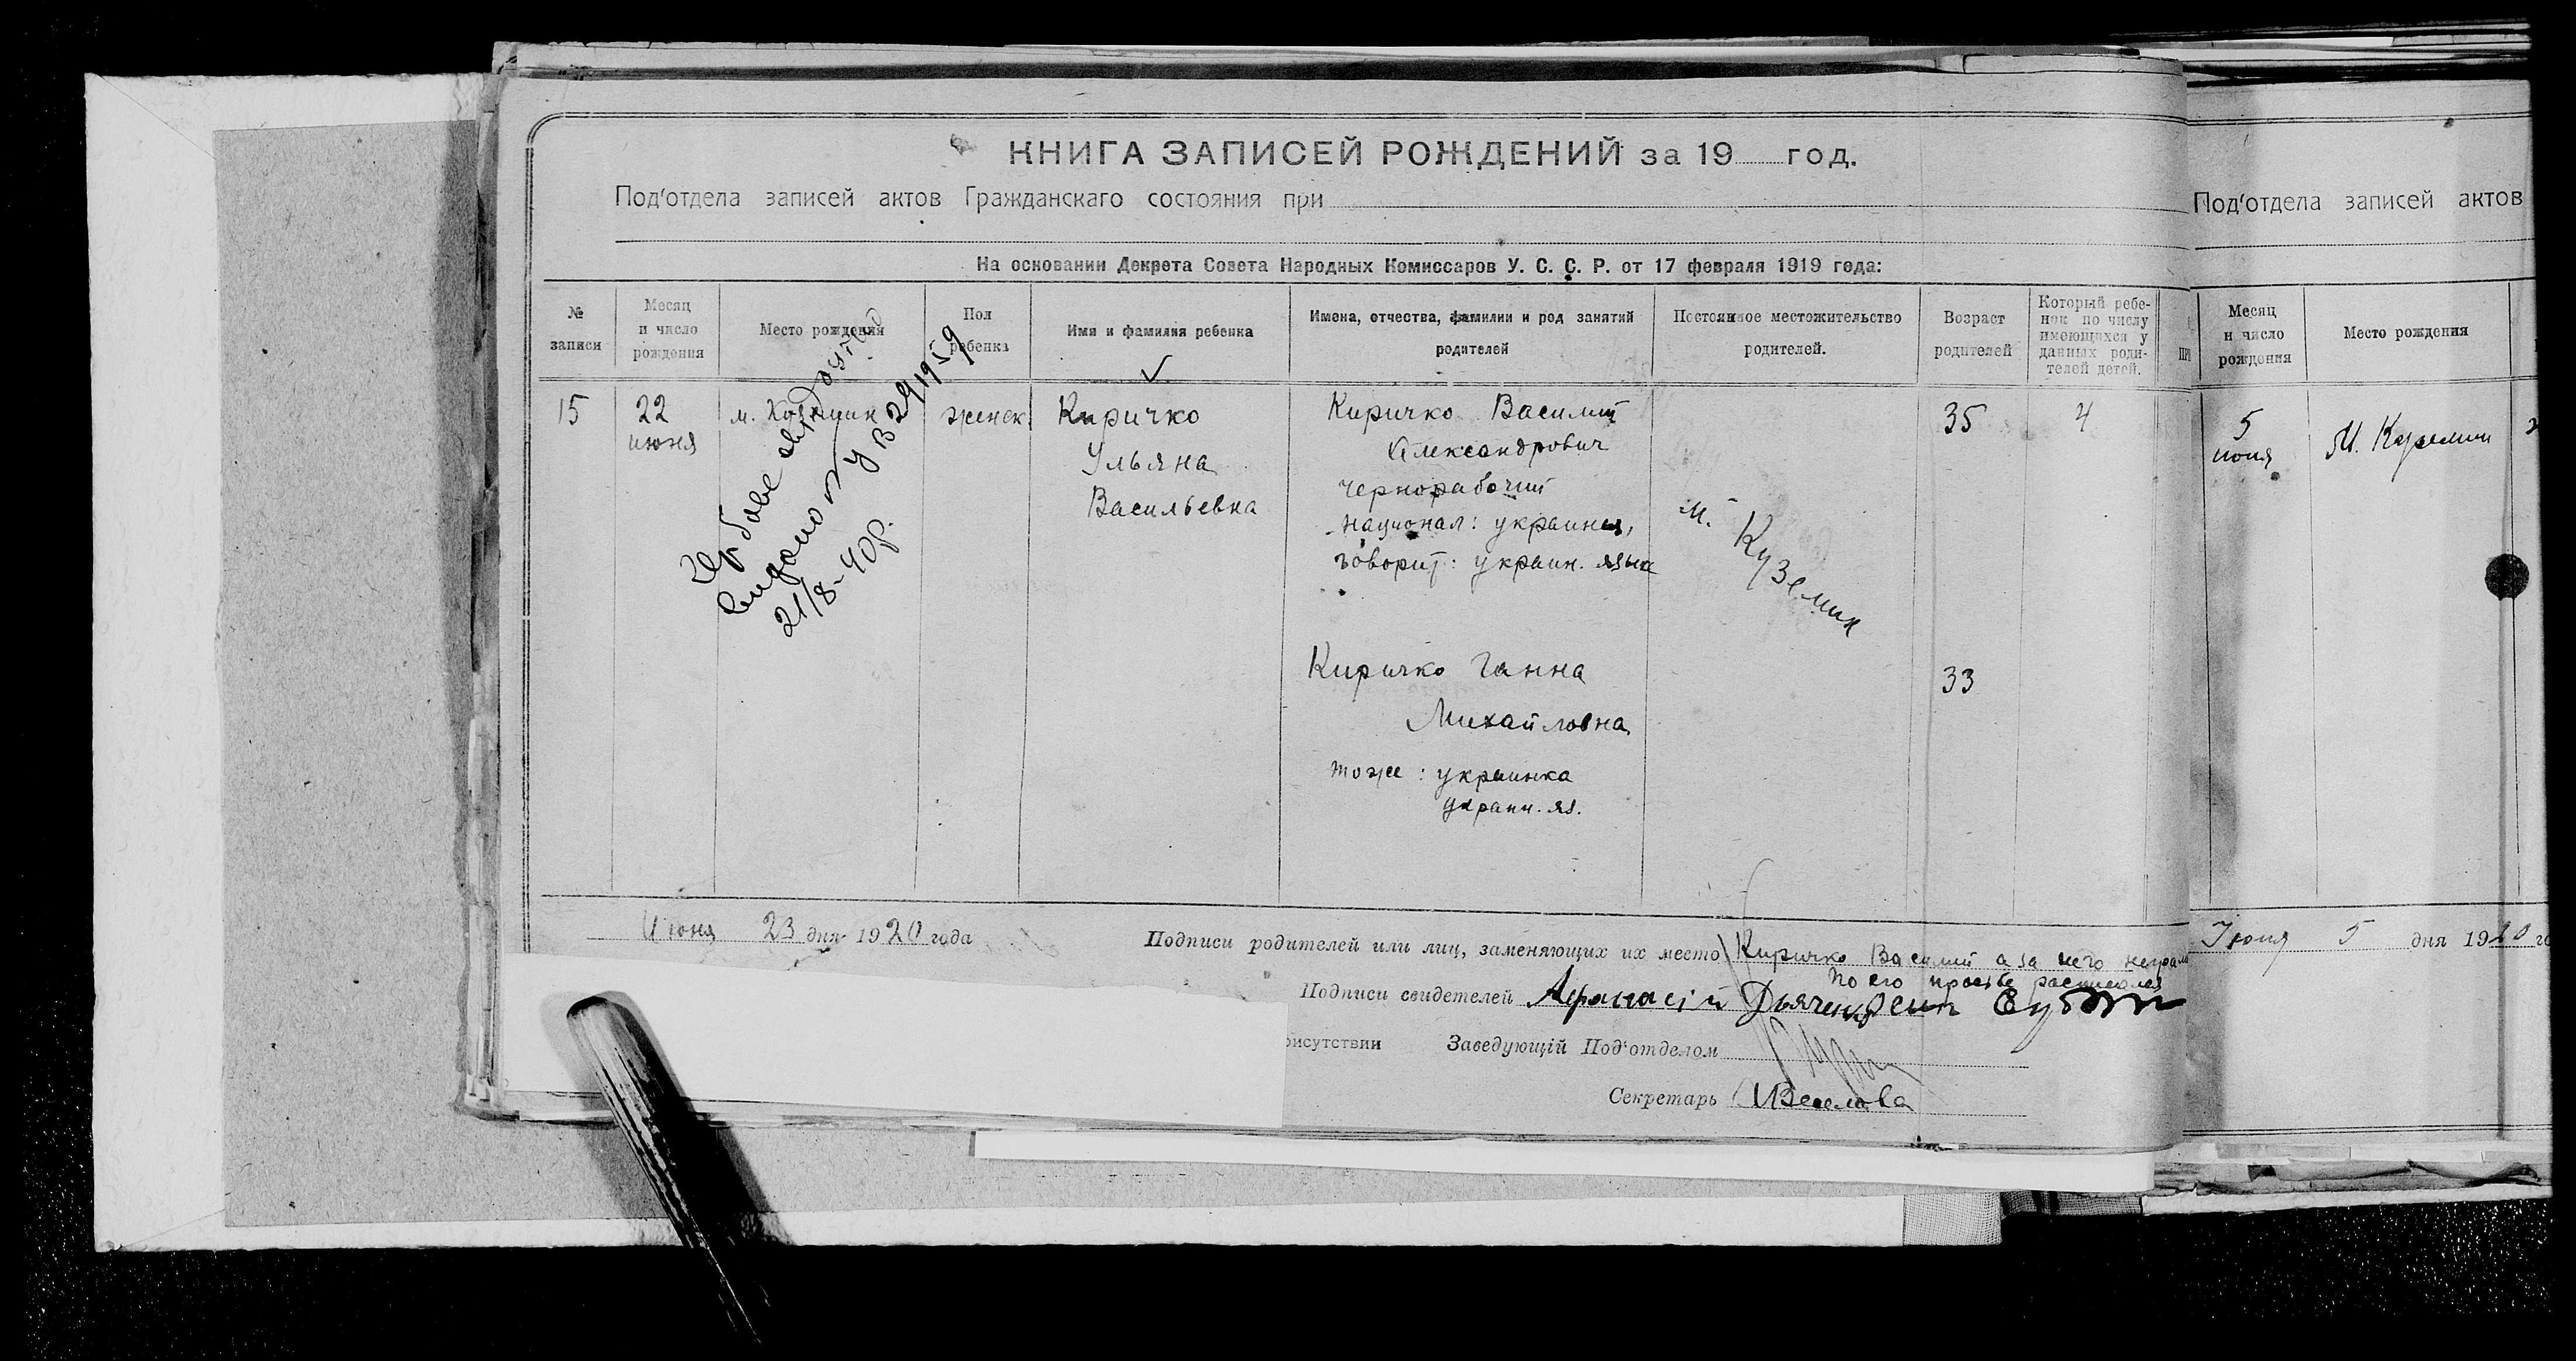 КНИГА ЗАПИСЕЙ РОЖДЕНИЙ за 19 год.
Под'отдела записей актов Гражданскаго состояния при
На основании Декрета Совета Народных Комиссаров У. С. С. Р. от 17 февраля 1919 года:
№ записи
Месяц и число рождения
Место рождения
Пол ребенка
Имя и фамилия ребенка
Имена, отчества, фамилии и род занятий родителей
Постоянное местожительство родителей.
Возраст родителей
Который ребенок по числу имеющихся у данных родителей детей.
15
22
июня
м. Куземин
женск.
Киричко
Ульяна
Васильевна
Киричко Василий
Александрович
чернорабочий
национал: украинец,
говорит: украин. языке
м. Куземин
35
4
Киричко Ганна
Михайловна
тоже: украинка
украин. яз.
33
видано
У В 291959
21/8-40р.
Июня 23 дня 1920 года
Подписи родителей или лиц, заменяющих их место Киричко Василий а за него неграм
По его просьбе расписался
Подписи свидетелей Афанасій Дьяченко
рисутствии Заведующій Под'отделом
Секретарь Веселова
Под'отдела записей актов
Месяц и число рождения
Место рождения
5
июня
М. Куземин
Июня 5 дня 1920 го